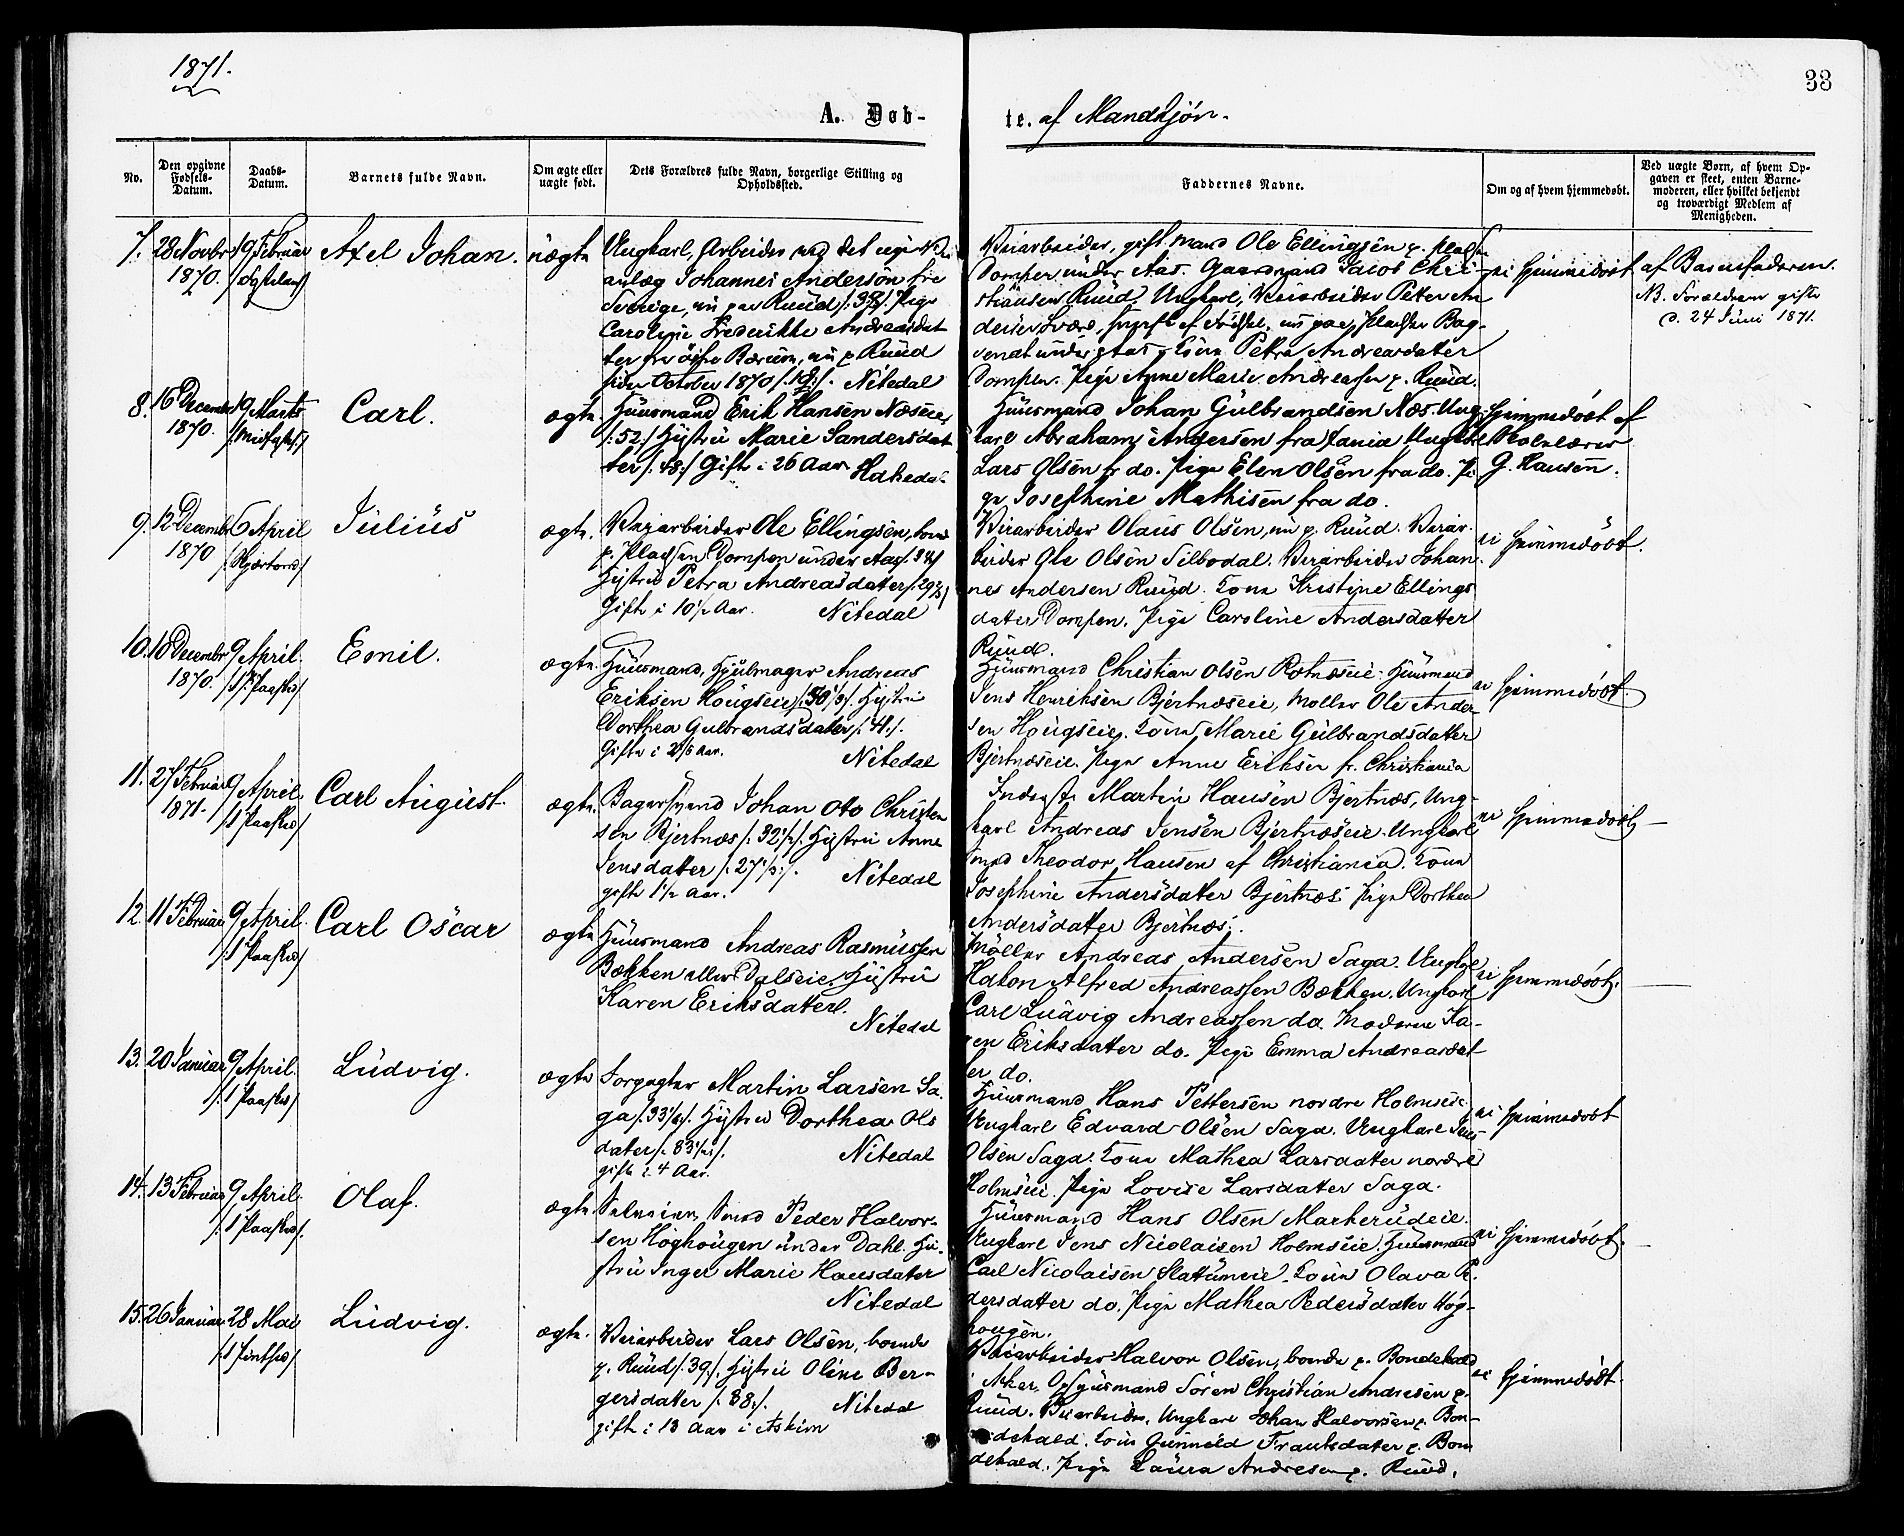 1871.
38
A. Døb-
te. af Mandkjøn.
No.
Den opgivne Fødsels-Datum.
Daabs-Datum.
Barnets fulde Navn.
Om ægte eller uægte født.
Dets Forældres fulde Navn, borgerlige Stilling og Opholdssted.
Faddernes Navne.
Om og af hvem hjemmedøbt.
Ved uægte Børn, af hvem Op-
gaven er skeet, enten Barne-
moderen, eller hvilket bekjendt
og troværdigt Medlem af
Menigheden.
7. 28 Novbr 1870. 19 Februar Axel Johan. uægte
Ungkarl, Arbeider ved det
anlæg Johannes Andersøn fra
Sverige, nu paa Ruud Pige
Caroline Frederikke Andreasdat
ter fra Bærum, nu p. Ruud
siden October 1870 Nitedal
Veiarbeider, gift Mand Ole Ellingsen p. Pladsen
Dompen under Aas. Gaardmand Jacob Chri-
stiansen Ruud. Ungkarl, Veiarbeider Petter An
dersen
under Aas Kone Petra Andreasdatter
Dompen. Pige Anne Marie Andreasen p. Ruud.
ei hjemmedøbt
af Barnefaderen.
NB. Forældrene gifte
d. 24 Juni 1871.
8. 16 Decembr 1870. 19 Marts /Midfaste/ Carl. ægte
Huusmand Erik Hansen Næseie
/:52:/ Hustru Marie Sandersdat
ter /:48:/ Gift i 26 Aar Hakedal
Huusmand Johan Gulbrandsen Næs. Ung-
karl Abraham Andersen fra Tania Ungkarl
Lars Olsen fr do. Pige Elen Olsen fra do. Pi
ge Josephine Mathisen fra do.
hjemmedøbt af
Skolelærer
G. Hansen.
9. 12 Decembr 1870 6 April /Skjærtorsd/ Julius ægte.
Veiarbeider Ole Ellingsen, boende
p. Pladsen Dompen under Aas
Hustru Petra Andreasdatter
Gift i 10½ Aar. Nitedal
Veiarbeider Olaus Olsen, nu p. Ruud. Veiar-
beider Ole Olsen Silbodal. Veiarbeider Johan-
nes Andersen Ruud. Kone Kristine Ellings
datter Dompen. Pige Caroline Andersdatter
Ruud.
ei hjemmedøbt.
10. 18 Decembr 1870. 9 April. /1 Paasked/ Emil. ægte.
Huusmand, Hjulmager Andreas
Eriksen Hougseie Hustru
Dorthea Gulbrandsdatter /:41:/.
Gifte i Aar. Nitedal
Huusmand Christian Olsen Rotnæseie. Huusmand
Jens Henriksen Bjertnæseie, Møller Ole Ander-
sen Hougseie. Kone Marie Gulbrandsdatter
Bjertnæseie. Pige Anne Eriksen fr. Christiania
ei hjemmedøbt.
11. 27 Februar 1871. 9 April. /1 Paasked/ Carl August. ægte.
Bagersvend Johan Oto Christen
sen Bjertnæs /:32½:/. Hustru Anne
Jensdatter /:27½:/. Nitedal
gifte 1½ Aar.
Inderst Martin Hansen Bjertnæs, Ung-
karl Andreas Jensen Bjertnæseie. Ungkarl
Theodor Hansen af Christiania. Kone
Josephine Andersdatter Bjertnæs. Pige Dorthea
Andersdatter Bjertnæs.
ei hjemmedøbt
12. 11 Februar 9 April. /1 Paasked/ Carl Oscar ægte
Huusmand Andreas Rasmussen
Bækken eller Dalseie. Hustru
Karen Eriksdatter.
Nitedal
Møller Andreas Andersen Saga. Ungkarl
Hakon Alfred Andreassen Bækken. Ungkarl
Carl Ludvig Andreassen do. Moderen Ka-
ren Eriksdatter do. Pige Emma Andreasdat
er do.
ei hjemmedøbt.
13. 20 Januar 9 April. /1 Paasked/ Ludvig. ægte
Forpagter Martin Larsen Sa-
ga Hustru Dorthea Ols
datter Nitedal
gifte i 4 Aar.
Huusmand Hans Pettersen nordre Holmseie.
Ungkarl Edvard Olsen Saga. Ungkarl Jens
Olsen Saga. Kone Mathea Larsdatter nordre
Holmseie. Pige Lovise Larsdatter Saga.
ei hjemmedøbt
14. 13 Februar 9 April. /1 Paasked/. Olaf. ægte.
Smed Peder Halvor-
sen Høghougen under Dahl. Hu-
stru Inger Marie Hansdatter
Nitedal
Huusmand Hans Olsen Markerudeie.
Ungkarl Jens Nicolaisen Holmseie. Huusmand
Carl Nicolaisen Slattumeie. Kone Olava Pe-
dersdatter do. Pige Mathea Pedersdatter Høg-
hougen.
ei hjemmedøbt.
15. 26 Januar 28 Mai /1 Pintsed/ Ludvig. ægte.
Veiarbeider Lars Olsen, boende
p. Ruud /:39:/. Hustru Oline Ber-
gersdatter /:38:/. Nitedal
gift i 13 Aar i Askim
Veiarbeider Halvor Olsen, boende p. Bondekald
i Aker. Opsynsmand Søren Christian Andresen p.
Ruud. Veiarbeider, Ungkarl Johan Halvorsen p. Bon-
dekald. Kone Gunnild Frantsdatter p. Bon
dekald. Pige Laura Andresen p. Ruud.
ei hjemmedøbt.